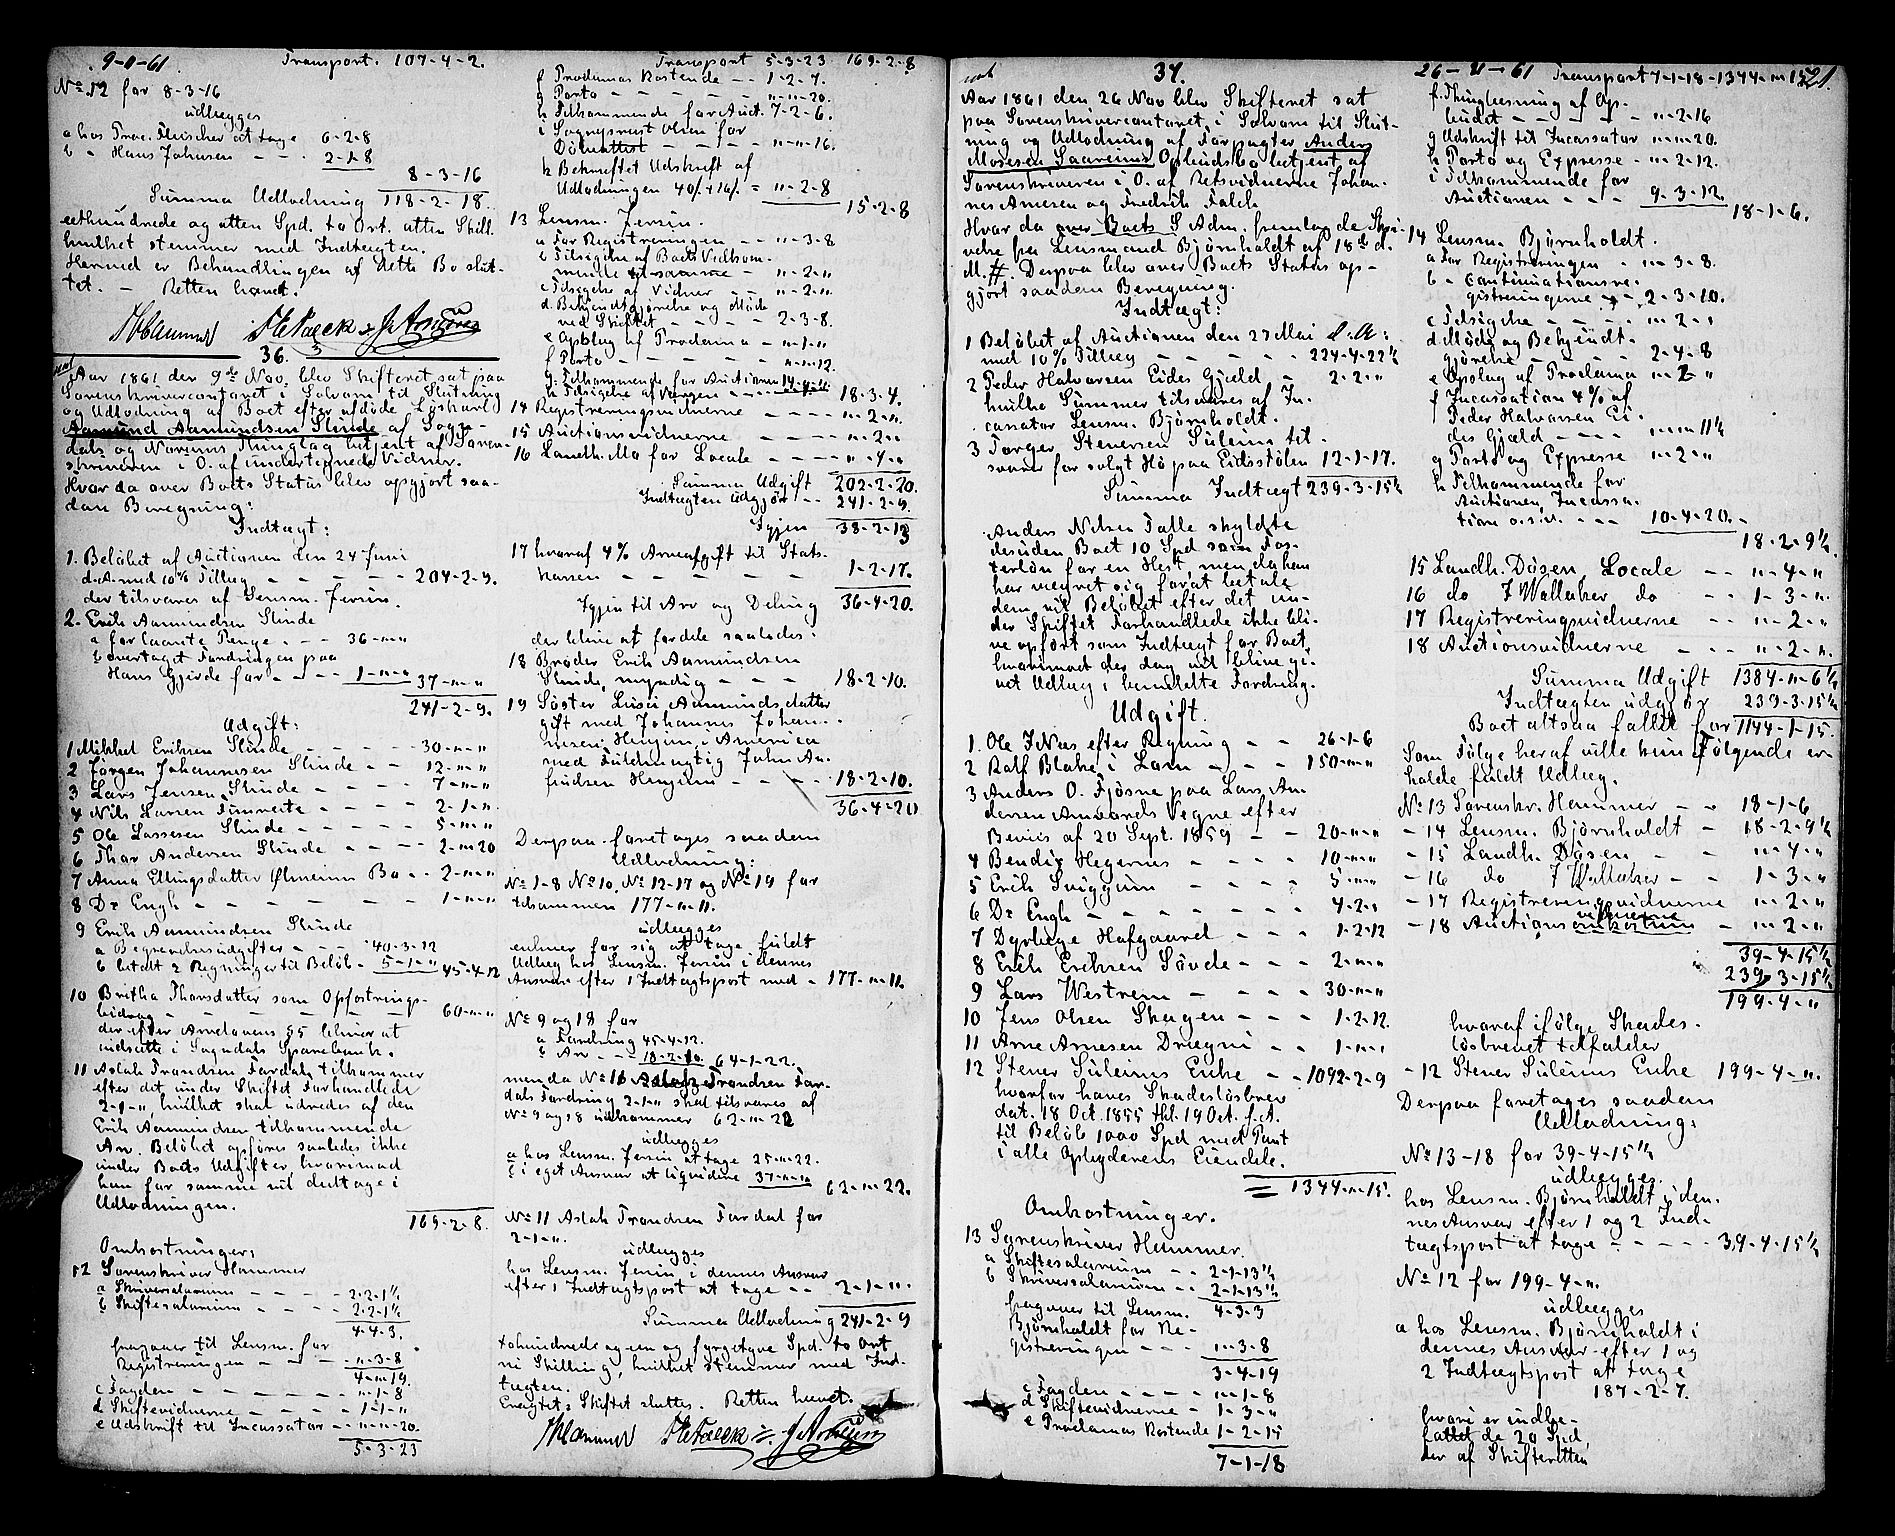 9-11-61
Transport. 107-4-2.
No. 12 for 8-3-16
udlægges
a hos Proc. Fleischer at tage 6-2-8
b " Hans Johnsen - - 2-1-8
8-3-16
Summa Udlodning 118-2-18.
eethundrede og atten Spd. to Ort. atten Skill.
hvilket stemmer med Indtægten.
Hermed er Behandlingen af dette Bo slut-
tet. - Retten hævet.
36.
Aar 1861 den 9de Nov. blev Skifteret sat paa
Sorenskrivercontoret i Solvorn til Slutning
og Udlodning af Boet efter afdøde Løskarl
Aamund Aamundsen Slinde af Sogn-
dals og Norums Thinglag betjent af Soren-
skriveren i O. af undertegnede Vidner.
Hvor da over Boets Status blev opgjort saa-
dan Beregning:
Indtægt:
1. Beløbet af Auctionen den 24 Juni
d.A. med 10% Tillæg - - - - 204-2-9.
der tilsvares af Lensm. Fersin.
2. Erik Aamundsen Slinde
a for laante Penge - - - 36-"-"
b overtaget Fordringen paa
Hans Gjerde for - - - 1-"-"
37-"-"
241-2-9.
Udgift:
1 Mikkel Eriksen Slinde - - - 30-"-"
2 Jørgen Johannesen Slinde - - 12-"-"
3 Lars Jensen Slinde - - - - 7-"-"
4 Nils Larsen Timreite - - - 2-1-"
5 Ole Lassesen Slinde - - - - 5-"-"
6 Thor Andersen Slinde - - - 2-"-20
7 Anna Ellingsdatter Ølmeims Bo - - 2-"-"
8 Dr Engh - - - - - 1-"-"
9 Erik Aamundsen Slinde
a Begravelsesudgifter - - - 40-3-12
b betalt 2 Regninger til Beløb - 5-1-"
45-4-12
10 Britha Thorsdatter som Opfostrings-
bidrag - - - - - 60-"-"
der efter Arvelovens §5 bliver at
indsætte i Sogndals Sparebank.
11 Aslak Trondsen Fardals tilkommer
efter det under Skiftet Forhandlede
2-1-", hvilket skal udredes af den
Erik Aamundsen tilkommende
Arv. Beløbet opføres saaledes ikke
under Boets Udgifter, hvorimod
han for samme vil deeltage i
Udlodningen.
169-2-8.
Omkostninger:
12 Sorenskriver Hammer
a Skriversalarium - - - 2-2-1½
b Skiftesalarium - - - 2-2-1½
4-4-3.
fragaaer til Lensm. for
Registreringen - - - "-3-8
4-"-19.
c Fogden - - - - "-1-8
d Skiftevidnerne - - - 1-1-"
e Udskrift til Incassator - - "-"-20.
5-3-23
Transport 5-3-23 169-2-8
f Proclamas Kostende - - 1-2-7.
g Porto - - - - "-"-20.
h Tilkommende for Auct. 7-2-6.
i Sogneprest Olsen for
Dødsattest - - - "-"-16.
k Bekræftet Udskrift af
Udlodningen = "-2-8
15-2-8
13 Lensm. Fersin.
a For Registreringen - - "-3-8
b Tilsigelse af Boets Vedkom-
mende til samme - "-2-"
c Tilsigelse af Vidner - - "-2-"
d. Bekjendtgjørelse og Møde
ved Skiftet - - - 2-3-8.
e Opslag af Proclama - "-1-"
f Porto - - - - "-"-12.
g. Tilkommende for Auctionen 14-4-"
h Tilsigelse af Værgen - - -
18-3-4.
14 Registreringsvidnerne - - - "-2-"
15 Auctionsvidnerne - - - - "-2-"
16 Landh. Mo for Locale - - - "-4-"
Summa Udgift 202-2-20.
Indtægten udgjør - - 241-2-9.
Igjen 38-2-13
17 hvoraf 4% Arveafgift til Stats-
kassen - - - - 1-2-17.
Igjen til Arv og Deling 36-4-20.
der blive at fordele saaledes:
18 Broder Erik Aamundsen
Slinde, myndig - - - 18-2-10.
19 Søster Lusci Aamundsdatter
gift med Johannes Johan-
nesen Hugum i America
med Fuldmægtig John An-
findsen Hugum - - - 18-2-10.
36-4-20
Derpaa foretages saadan
Udlodning:
No 1-8 No 10, No 12-17 og No 19 for
tilsammen 177-"-11.
udlægges
enhver for sig at tage fuldt
Udlæg hos Lensm. Fersin i dennes
Ansvar efter 1 Indtægtspost med - 177-"-11.
No 9 og 18 for
a Fordring 45-4-12.
b Arv - - 18-2-10. 64-1-22.
men da No 11 Aslak Trondsen Far-
dals Fordring 2-1-" skal tilsvares af
No 9 og 18 udkommer 62-"-22
udlægges
a hos Lensm. Fersin at tage 25-"-22.
b i eget Ansvar at liquidere 37-"-"
62-"-22.
No 11 Aslak Trondsen Fardal for
2-1-".
udlægges
hos Lensm. Fersin i dennes Ansvar
efter 1 Indtægtspost at tage - - 2-1-".
Summa Udlodning 241-2-9
tohundrede og een og fyrgetyve Spd. to Ort
ni Skilling, hvilket stemmer med Ind-
tægten.
Skiftet sluttes. Retten hævet.
37.
26-11-61
Transport 7-1-18-1344-"-15
521.
Aar 1861 den 26 Nov blev Skifteret sat
paa Sorenskrivercontoret i Solvorn til Slut-
ning og Udlodning af Forpagter Anders
Mosesen Saareims Opbudsbo betjent af
Sorenskriveren i O. af Retsvidnerne Johan-
nes Arneren og Fredrik Falch
Hvor da over Boets S Adm. fremlagde Skri-
velse fra Lensmand Bjørnholdt af 18de d.
M. #. Derpaa blev over Boets Status op-
gjort saadan Beregning.
Indtægt:
1 Beløbet af Auctionen den 27 Mai d.A:
med 10% Tillæg - - - 224-4-22½
2 Peder Halvorsen Eides Gjæld - - 2-2-"
hvilke Summer tilsvares af In-
cassator Lensm. Bjørnholdt.
3 Torger Stenersen Süleims til-
svar for solgt Hø paa Eidsstølen 12-1-17.
Summa Indtægt 239-3-15½
Anders Nilsen Talle skyldte
desuden Boet 10 Spd som Fos-
terløn for en Hest, men da han
har vægret sig for at betale
dem vil Beløbet efter det un-
der Skiftet Forhandlede ikke bli-
ve opført som Indtægt for Boet,
hvorimod der dog vil blive gi-
vet Udlæg i bemeldte Fordring.
Udgift.
1. Ole J Næs efter Regning - - 26-1-6
2 Rolf Blakar i Lom - - - 150-"-"
3 Anders O. Fjøsne paa Lars An-
dersen Amaards Vegne efter
Beviis af 20 Sept. 1859 - - 20-"-"
4 Bendix Hegernes - - - - 10-"-"
5 Erik Sviggum - - - - 5-"-"
6 Dr Engh - - - - - 4-2-"
7 Dyrlæge Hofgaard - - - 1-2-12
8 Erik Eriksen Søvde - - - 2-"-"
9 Lars Westrem - - - - 30-"-"
10 Jens Olsen Skagen - - - 1-2-12.
11 Arne Arnesen Drægni - - 1-"-"
12 Stener Süleims Enke - - 1092-2-9
hvorfor haves Skadesløsbrev
dat. 18 Oct. 1855 thl. 19 Oct. s.A.
til Beløb 1000 Spd med Pant
i alle Opbyderens Eiendele.
1344-"-15.
Omkostninger.
13 Sorenskriver Hammer.
a Skiftesalarium - - 2-1-13½
b Skriversalarium - - 2-1-13½
4-3-3
fragaaer til Lensm.
Bjørnholdt for Re-
gistreringen - - - "-3-8
3-4-19
c Fogden - - - - "-1-8
d Skiftevidnerne - - 1-3-"
e Proclamas Kostende 1-2-15
7-1-18
f. Thinglæsning af Op-
budet - - - - "-2-16
g Udskrift til Incassator "-"-20.
h Porto og Expresse - "-2-12.
i Tilkommende for
Auctionen - - - 9-3-12.
18-1-6.
14 Lensm. Bjørnholdt.
a For Registreringen - "-3-8.
b - Continuationsre-
gistreringerne - - 2-3-10.
c Tilsigelse - - - "-2-"
d Møde og Bekjendt-
gjørelse - - - 2-4-8
e Opslag af Proclama "-2-"
f Incassation 4% af
Peder Halvorsen Ei-
des Gjæld - - - "-"-11½
g Porto og Expresse "-2-"
h Tilkommende for
Auctionen, Incassa-
tion o.s.v. - - - 10-4-20.
18-2-9½.
15 Landh. Døsen, Locale - - "-4-"
16 do J Wallaker do - - 1-3-"
17 Registreringsvidnerne - - "-2-"
18 Auctionsvidnerne - - - "-2-"
Summa Udgift 1384-"-6½
Indtægten udgjør 239-3-15½
Boet altsaa fallit for 1144-1-15.
Som Følge heraf ville kun Følgende er-
holde fuldt Udlæg.
No 13 Sorenskr. Hammer - - 18-1-6
- 14 Lensm. Bjørnholdt - 18-2-9½
- 15 Landh. Døsen - - "-4-"
- 16 do J Wallaker - - 1-3-"
- 17 Registreringsvidnerne "-2-"
- 18 Auctionsvidnerne - "-2-"
39-4-15½
239-3-15½
199-4-"
hvoraf ifølge Skades-
løsbrevet tilfalder
- 12 Stener Süleims Enke 199-4-".
Derpaa foretages saadan
Udlodning:
No 13-18 for 39-4-15½
udlægges.
hos Lensm. Bjørnholdt i den-
nes Ansvar efter 1 og 2 Ind-
tægtspost at tage - - - - 39-4-15½
No 12 for 199-4-".
udlægges
a hos Lensm. Bjørnholdt i
dennes Ansvar efter 1 og
2 Indtægtspost at tage
187-2-7.
hvori er indbe-
fattet de 20 Spd.
der af Skifteretten